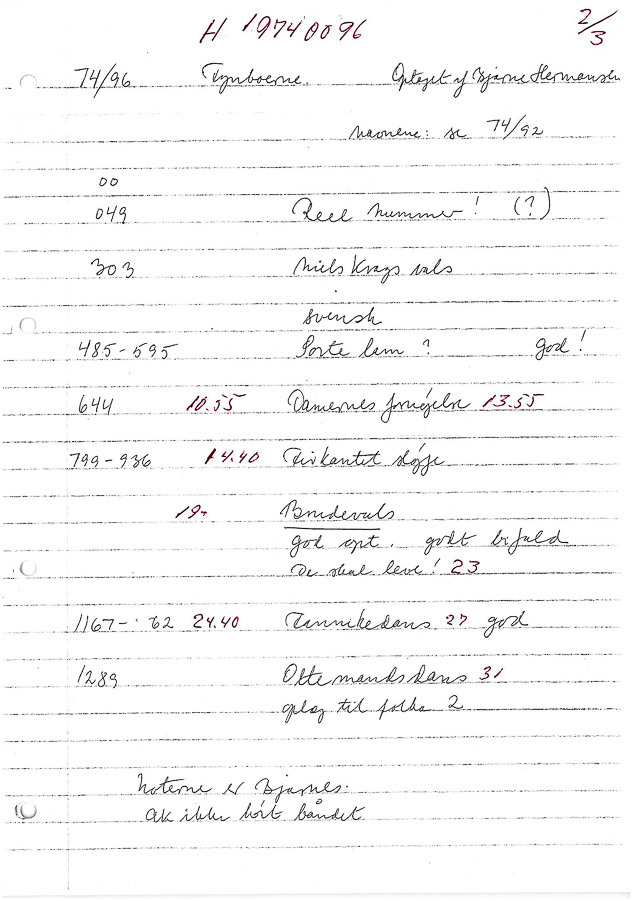 H 19740096 2/3
74/96 Fynboerne. Optaget af Bjarne Hermansen
navnene: se 74/92
00
049 Reel nummer! (?)
303 Niels Krags vals
svensk
485-595 Sorte lam? god!
644 10.55 Damernes fornøjelse 13.55
799-936 14.40 Firkantet sløjfe
19- Brudevals
god opt. godt bifald
De skal leve! 23
1167-'62 24.40 Finnikedans 27 god
1289 Ottemandsdans 31
oplæg til folka 2
Noterne er Bjarnes.
AK ikke hørt båndet